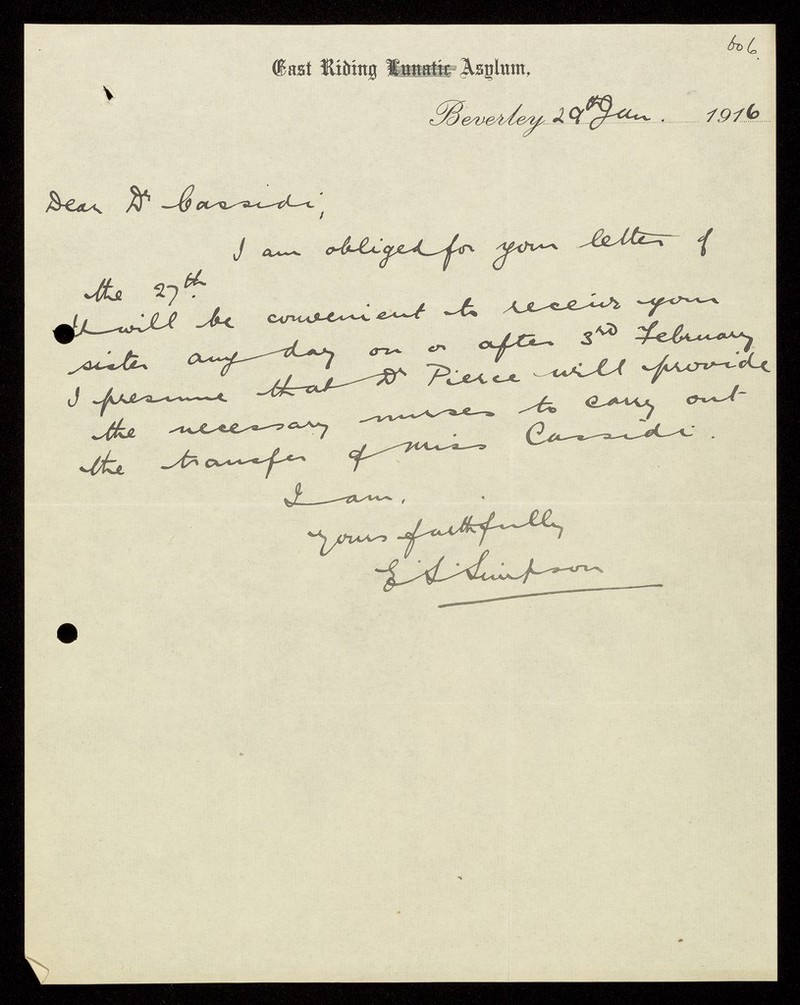 606.
East Riding Lunatic Asylum.
Beverley 29th Jan. 1916
Dear Dr Cassidi,
I am obliged for your letter of
the 27th.
It will be convenient to receive your
sister any day on or after 3rd February
I presume that Dr Pierce will provide
the necessary nurses to carry out
the transfer of Miss Cassidi.
I am.
yours faithfully
E S Simpson